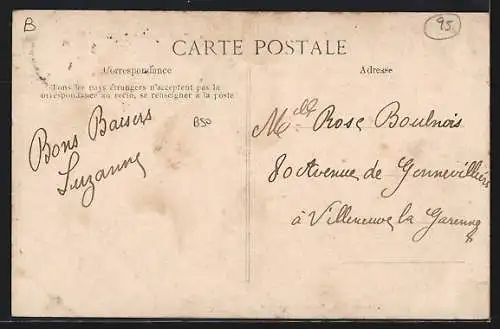 B
95
CARTE POSTALE
Correspondance
Tous les pays étrangers n'acceptent pas la
correspondance au recto, se renseigner à la poste
B50
Bons Baisers
Suzanne
Adresse
Melle Rose Boulnois
80 Avenue de Gennevilliers
à Villeneuve la Garenne